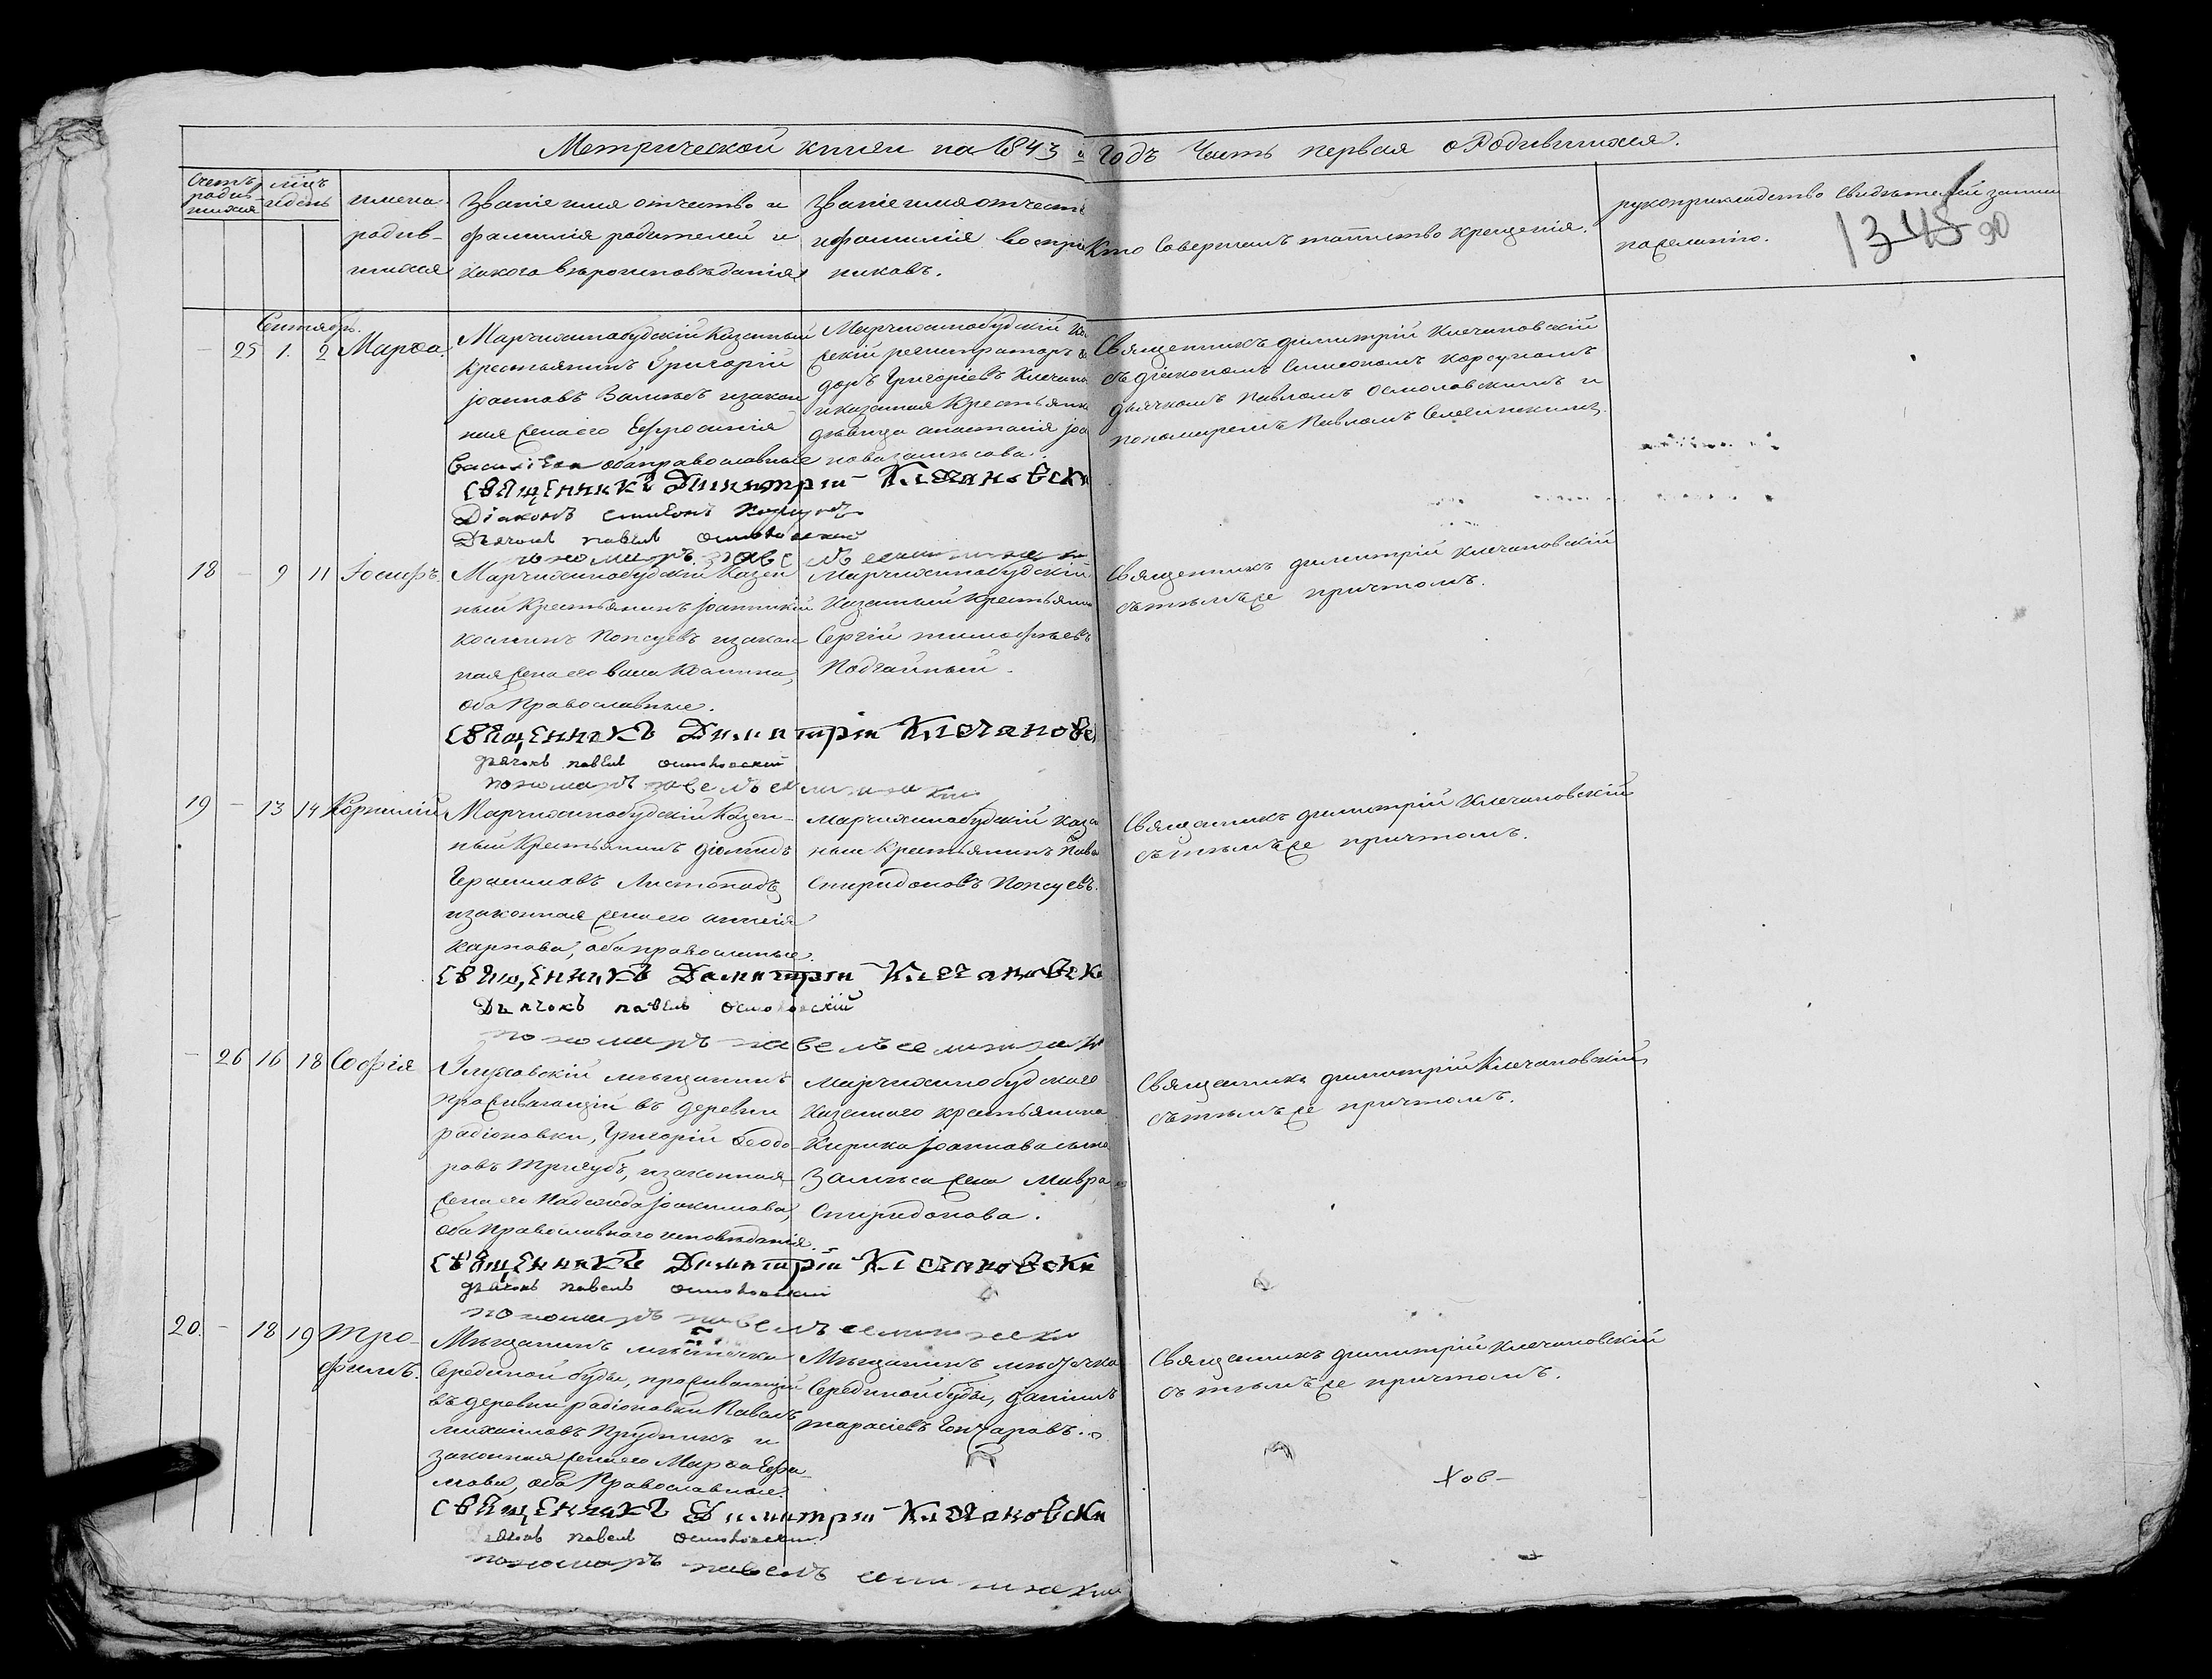 Метрической книги на 1843 й годъ Часть первая о Родившихся.
Счетъ родив-шихся
м҃цъ и день
имена родив-шихся
Званіе имя отчество и
фамилія родителей и
какого вѣроисповѣданія
Званіе имя отчест
и фамилія воспріе
никовъ.
Кто Совершалъ таинство крещенія.
рукоприкладство Свидѣтелей записи
по желанію.
1345 90
Сентябрь.
25 1. 2 Марѳа.
Марчихинобудскій Казенный
Крестьянинъ Григорій
Іоанновъ Зализъ и закон
ная жена его Ефросинія
Василіева оба православные
Марчихинобудскій
скій регистраторъ
доръ Григоріевъ Клечано
и казенная Крестьянка
дѣвица анастасія Іоа
нова
Священникъ димитрій Клечановскій
съ діякономъ Симеономъ Корсуномъ
дьячкомъ Павломъ Осмоловскимъ и
пономаремъ Павломъ Сележинскимъ.
Священникъ Димитрій Клечановск
Діаконъ Симеонъ Корсунъ
Дьячокъ павелъ осмоловскій
пономаръ павелъ
18 – 9 11 Іосифъ.
Марчихинобудскій Казен
ный Крестьянинъ Іоанникій
Козминъ Попсуевъ и закон
ная жена его васа Козмина,
оба Православные.
Марчихинобудскій
Казенный Крестьянин
Сергій тимофѣевъ
Подгайный.
Священникъ димитрій клечановскій
съ тѣмъ же причтомъ.
Священникъ Димитрій Клечановс
дьячокъ павелъ осмоловскій
пономаръ павелъ
19 – 13 14 Корнилій
Марчихинобудскій Казен-
ный Крестьянинъ діомидъ
Герасимовъ Листопадъ
и законная жена его
карпова, оба православные.
Марчихинобудскій казен
ный Крестьянинъ Пав
Спиридоновъ Попсуевъ.
Священникъ димитрій Клечановскій
съ тѣмъ же причтомъ.
Священникъ Димитрій Клечановск
Дьячокъ павелъ осмоловскій
пономаръ павелъ
– 26 16 18 Софія
Глуховскій мѣщанинъ
проживающій въ деревни
радіоновки, Григорій Ѳеодо
ровъ Тригубъ, и законная
жена его Надежда Іоакимова,
оба Православнаго исповѣданія.
Марчихинобудского
Казенного крестьянина
Кирика Іоаннова сына
Зализа жена Мавра
Спиридонова.
Священникъ димитрій Клечановскій
съ тѣмъ же причтомъ.
Священникъ Димитрій Клечановски
дьячокъ павелъ осмоловскій
пономаръ павелъ
20. – 18 19 Тро-
фимъ.
Мѣщанинъ мѣстечка
Серединой буды, проживающій
въ деревни радіоновки Павелъ
михаиловъ Прудникъ и
законная жена его Марѳа Ефи
мова, оба Православные.
Мѣщанинъ мѣстечка
Серединой буды, даніилъ
тарасіевъ Гончаровъ.
Священникъ димитрій Клечановскій
съ тѣмъ же причтомъ.
Священникъ Димитрій Клечановски
Дьячокъ павелъ осмоловскій
пономаръ павелъ